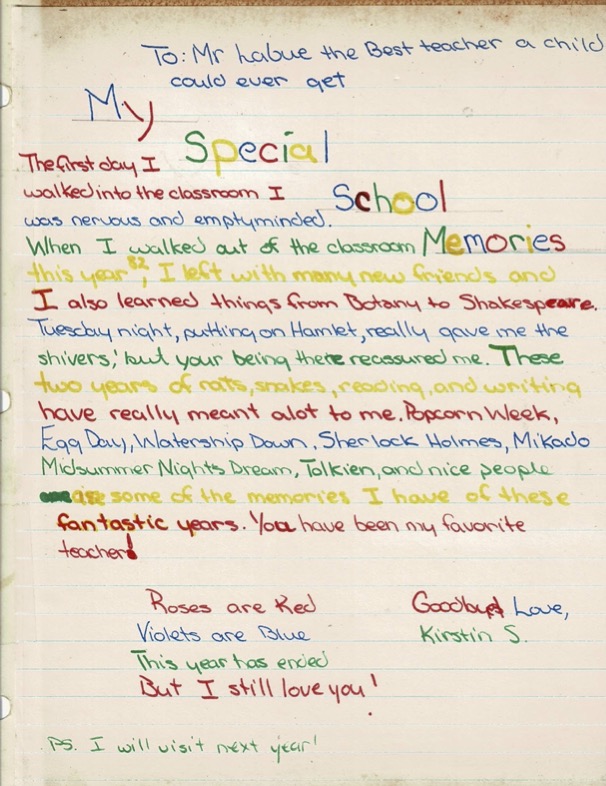 To: Mr Labue the Best teacher a child
could ever get
My
Special
School
Memories
The first day I
walked into the classroom I
was nervous and emptyminded.
When I walked out of the classroom
this year '82, I left with many new friends and
I also learned things from Botany to Shakespeare.
Tuesday night, putting on Hamlet, really gave me the
shivers, but your being there reassured me. These
two years of rats, snakes, reading, and writing
have really meant alot to me. Popcorn Week,
Egg Day, Watership Down, Sherlock Holmes, Mikado
Midsummer Nights Dream, Tolkien, and nice people
are some of the memories I have of these
fantastic years. You have been my favorite
teacher!
Roses are Red
Violets are Blue
This year has ended
But I still love you!
Goodbye Love,
Kirstin S.
P.S. I will visit next year!